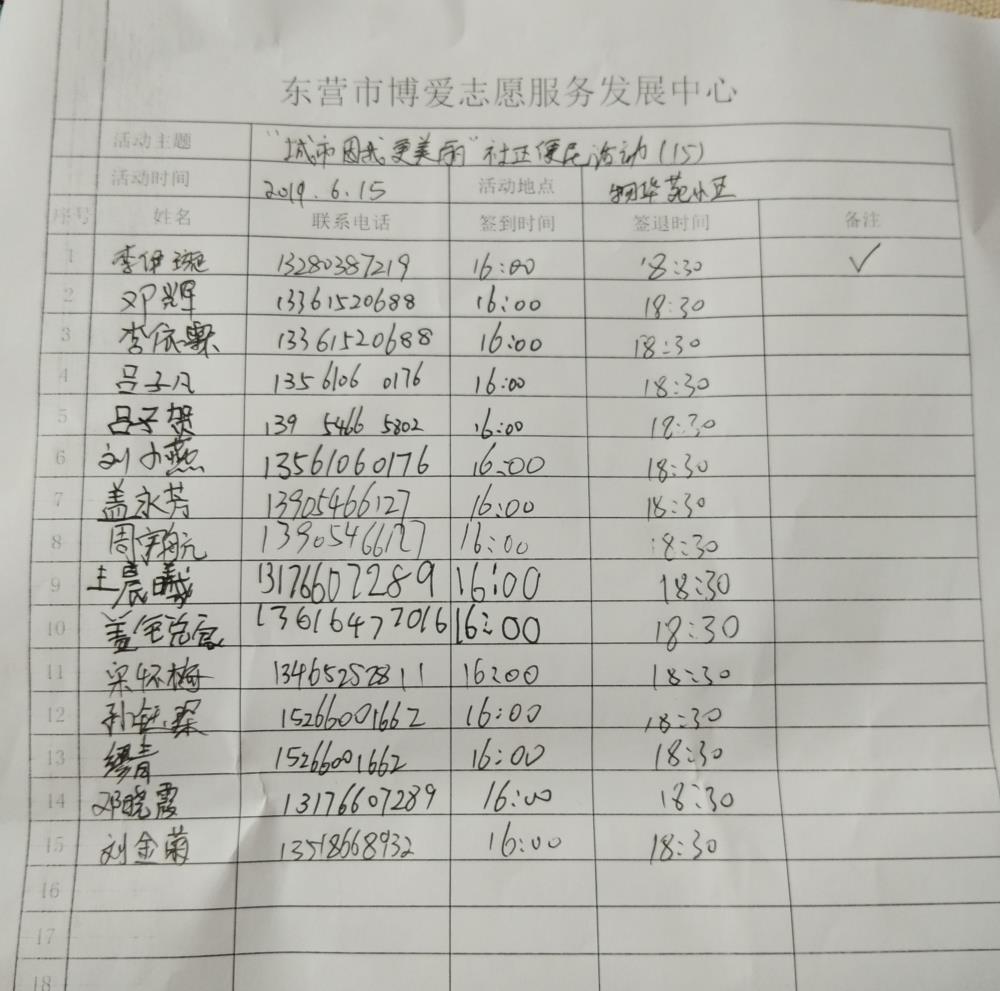 东营市博爱志愿服务发展中心
活动主题 "城市因我更美丽"社区便民活动(15)
活动时间 2019.6.15 活动地点 物华苑小区
序号 姓名 联系电话 签到时间 签退时间 备注
1 李伊琬 13280387219 16:00 18:30 ✓
2 邓辉 13361520688 16:00 18:30
3 李依霖 13361520688 16:00 18:30
4 吕子凡 1356106 0176 16:00 18:30
5 吕子贺 139 5466 5802 16:00 18:30
6 刘小燕 13561060176 16:00 18:30
7 盖永芳 13905466127 16:00 18:30
8 周宇翔元 13905466127 16:00 18:30
9 王晨曦 131766072289 16:00 18:30
10 盖 13616472016 16:00 18:30
11 梁怀梅 13465252811 16:00 18:30
12 孙钰琛 15266001662 16:00 18:30
13 缪青 15266001662 16:00 18:30
14 邓晓霞 13176607289 16:00 18:30
15 刘金菊 13518668932 16:00 18:30
16
17
18